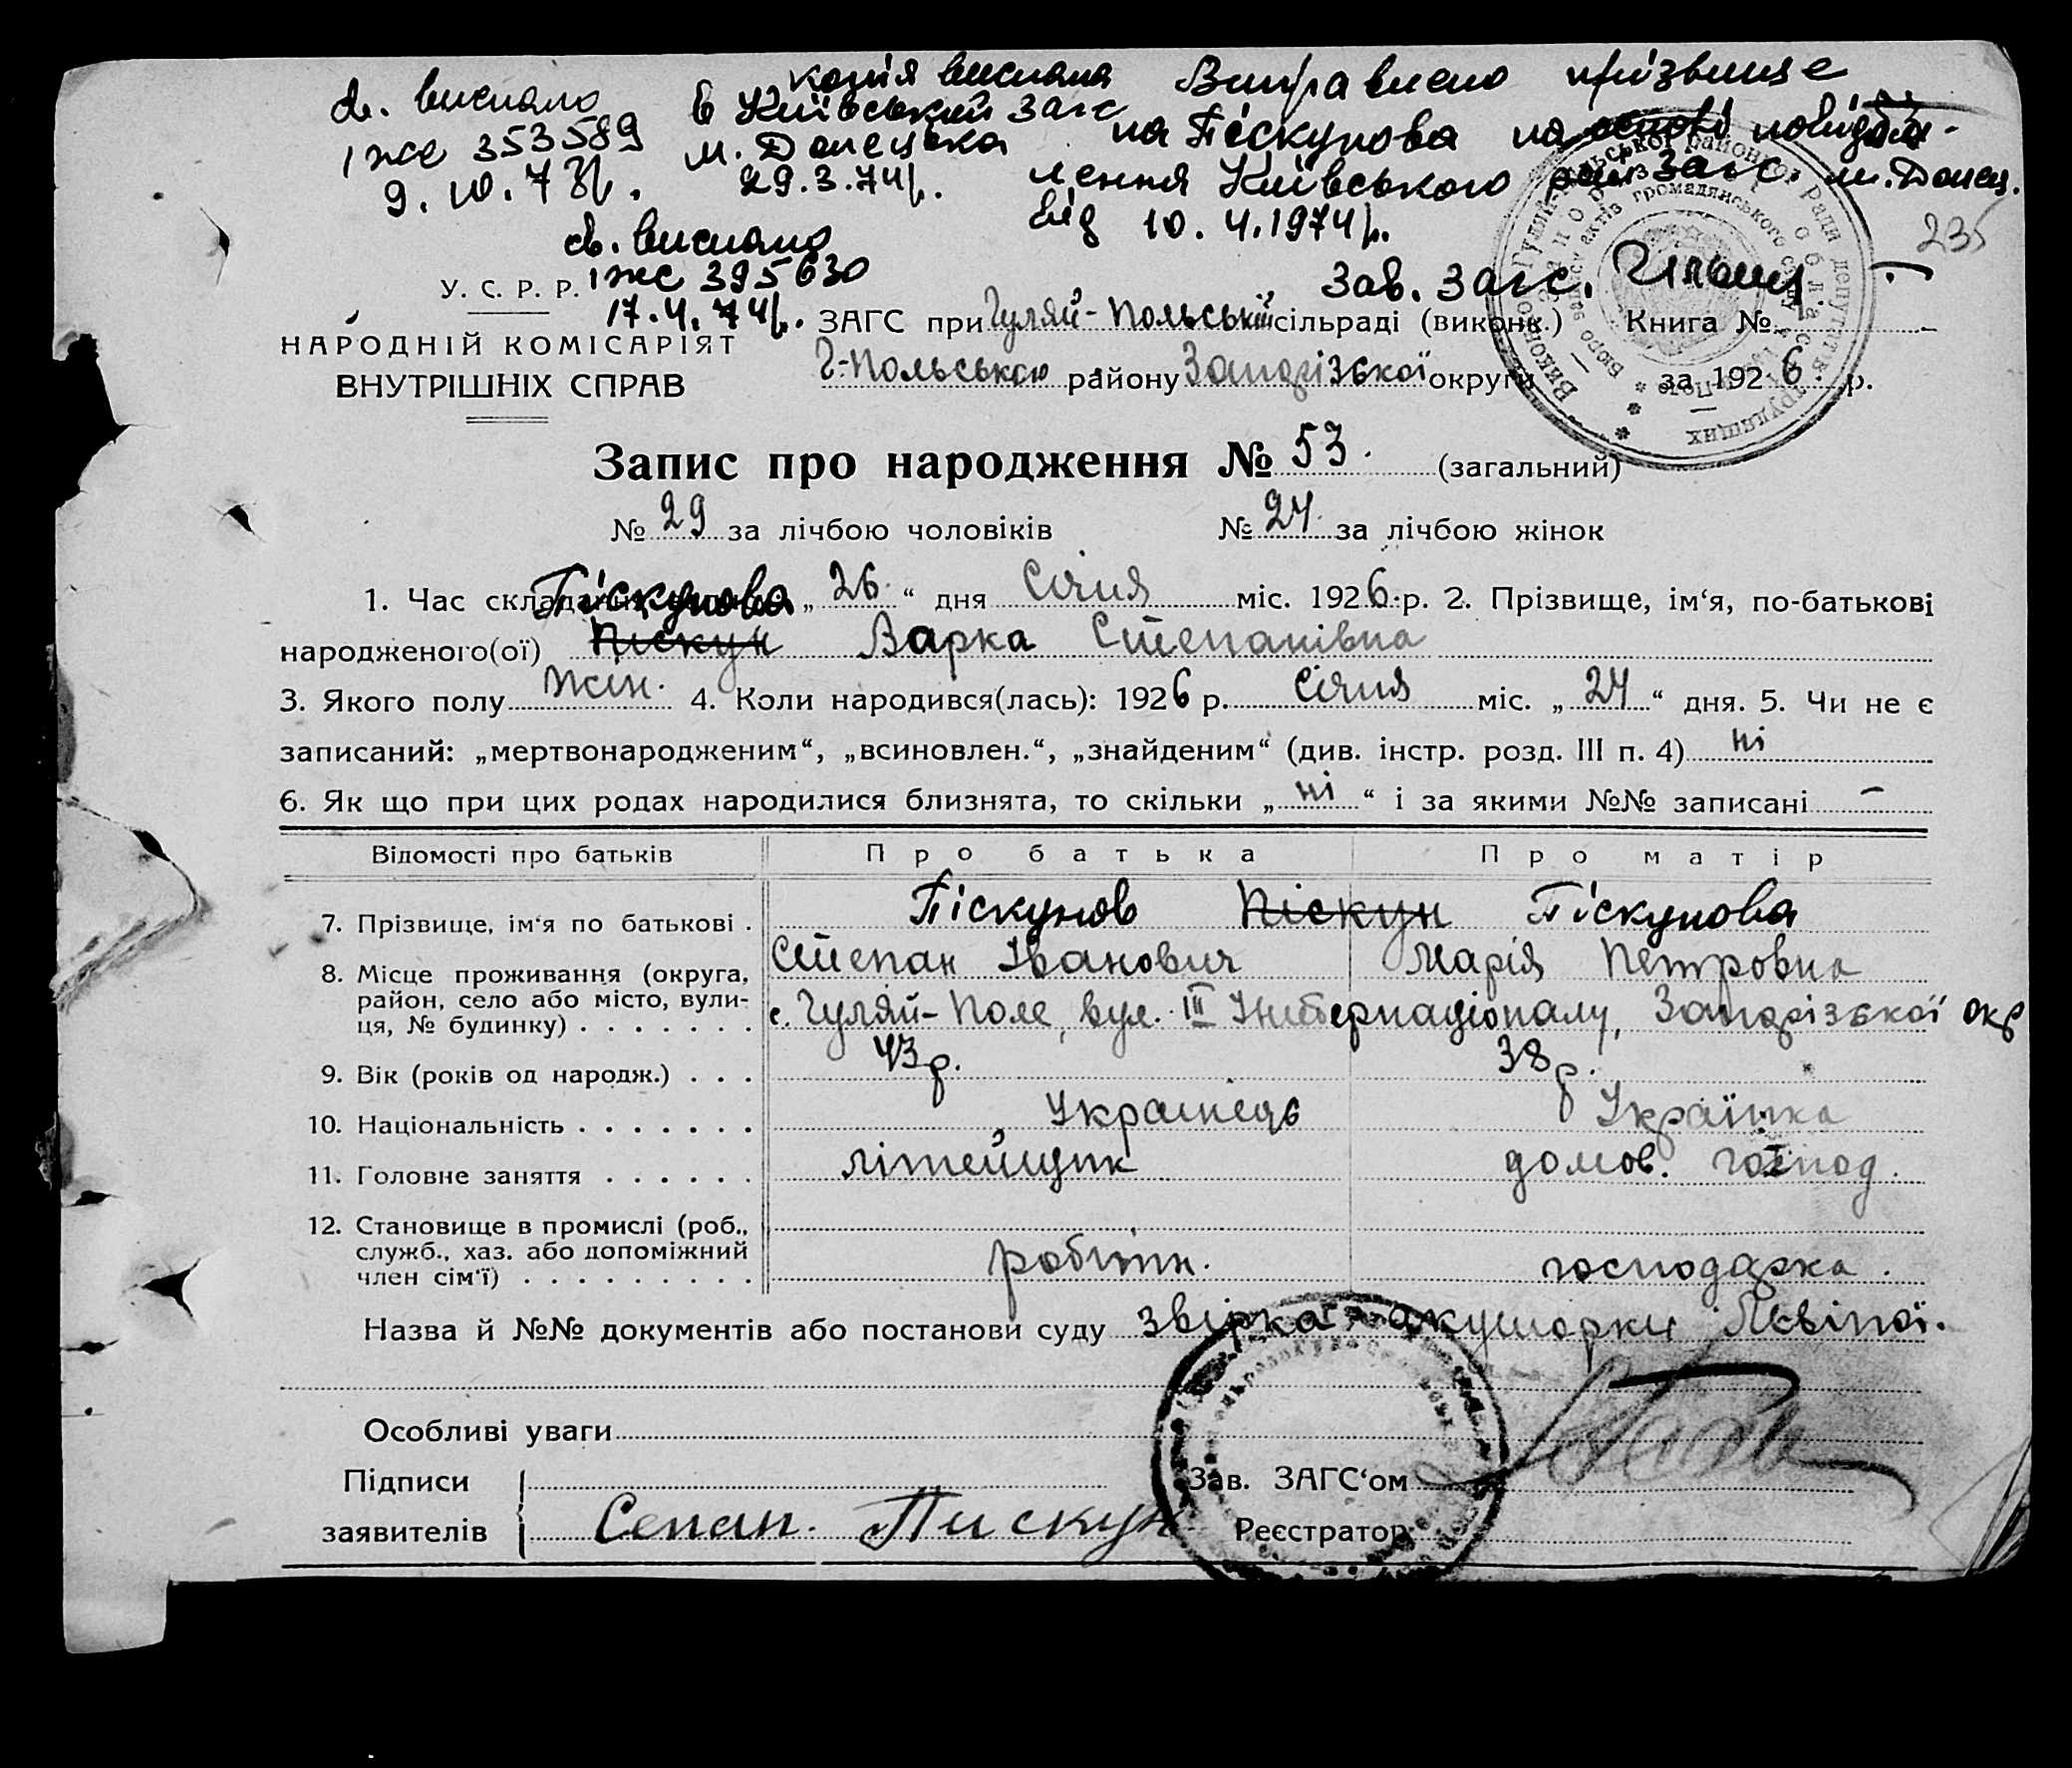 св. вислано
І жс 353589
9.10.73р.
копія вислана
в Київський загс
м. Донецька
29.3.74р.
Виправлено прізвище
на Піскунова на основі повідом-
лення Київського рай загс. м. Донец.
від 10.4.1974р.
Зав. загс.
235
св. вислано
І жс 395630
17.4.74р.
У. С. Р. Р.
НАРОДНІЙ КОМІСАРІЯТ
ВНУТРІШНІХ СПРАВ
ЗАГС при Гуляй-Польській сільраді (виконк.) Книга №
Г-Польського району Запорізької округи за 1926 р.
Запис про народження № 53. (загальний)
№ 29 за лічбою чоловіків № 24. за лічбою жінок
Піскунова
1. Час складання „26“ дня Січня міс. 1926 р. 2. Прізвище, ім‘я, по-батькові
народженого(ої) Піскун Варка Степанівна
3. Якого полу жін. 4. Коли народився(лась): 1926 р. Січня міс. „24“ дня. 5. Чи не є
записаний: „мертвонародженим“, „всиновлен.“, „знайденим“ (див. інстр. розд. III п. 4) ні
6. Як що при цих родах народилися близнята, то скільки „ні“ і за якими №№ записані –
Відомості про батьків Про батька Про матір
7. Прізвище, ім‘я по батькові . Піскунов Піскун Піскунова
Степан Іванович Марія Петровна
8. Місце проживання (округа,
район, село або місто, вули-
ця, № будинку) . . . . . . . с. Гуляй-Поле, вул. III Інтернаціоналу, Запорізької окр
9. Вік (років од народж.) . . . 43 р. 38 р.
10. Національність . . . . . . . Українець Українка
11. Головне заняття . . . . . . літейщик домов. господ.
12. Становище в промислі (роб.,
служб., хаз. або допоміжний
член сім‘ї) . . . . . . . . . робітн. господарка.
Назва й №№ документів або постанови суду звірка акушорки Левіної.
Особливі уваги
Підписи
заявителів Сепан. Пискун
Зав. ЗАГС‘ом
Реєстратор